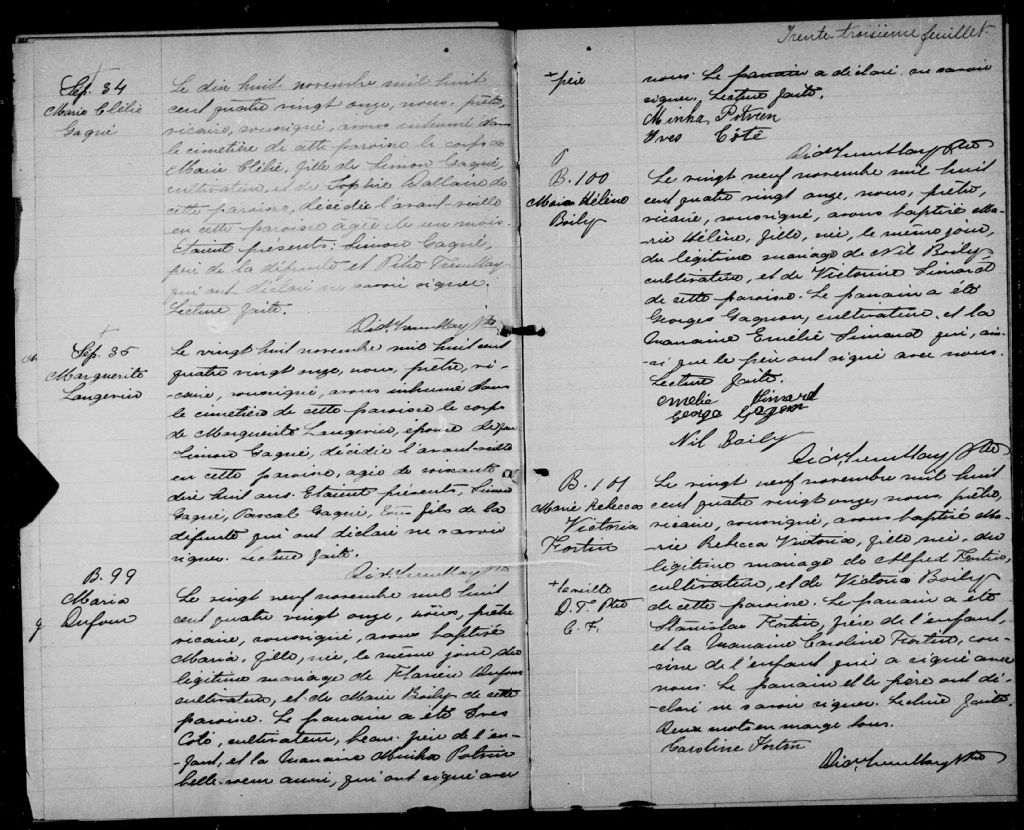 Sep. 34
Marie Clélie
Gagné
Le dix huit novembre mil huit
cent quatre vingt onze, nous, prêtre,
vicaire, soussigné, avons inhumé dans
le cimetière de cette paroisse le corps de
Marie Clélie, fille de Simon Gagné,
cultivateur, et de Sophie Dallaire de
cette paroisse, décédée l'avant-veille
en cette paroisse agée de un mois.
Etaient présents: Simon Gagné,
père de la défunte et Pitre Tremblay
qui ont déclaré ne savoir signer.
Lecture faite.
Did. Tremblay Ptre
Sep. 35
Marguerite
Langevin
Le vingt huit novembre mil huit cent
quatre vingt onze, nous, prêtre, vi-
caire, soussigné, avons inhumé dans
le cimetière de cette paroisse le corps
de Marguerite Langevin, épouse de feu
Simon Gagné, décédée l'avant-veille
en cette paroisse, agée de soixante
dix huit ans. Etaient présents, Simon
Gagné, Pascal Gagné, tous fils de la
défunte qui ont déclaré ne savoir
signer. Lecture faite.
Did. Tremblay Ptre
B. 99
Maria
Dufour
Le vingt neuf novembre mil huit
cent quatre vingt onze, nous, prêtre
vicaire, soussigné, avons baptisé
Maria, fille, née, le même jour, du
légitime mariage de Flavien Dufour
cultivateur, et de Marie Boily de cette
paroisse. Le parrain a été Yves
Coté, cultivateur, beau-frère de l'en-
fant, et la marraine Minha Potvin
belle-soeur aussi, qui ont signé avec
Trente-troisième feuillet.
+ père
nous. Le parrain a déclaré ne savoir
signer. Lecture faite.
Minha Potvin
Yves Côté
Did. Tremblay Ptre
B. 100
Marie Hélène
Boily
Le vingt neuf novembre mil huit
cent quatre vingt onze, nous, prêtre,
vicaire, soussigné, avons baptisé Ma-
rie Hélène, fille, née, le même jour,
du légitime mariage de Nil Boily,
cultivateur, et de Victorine Simard
de cette paroisse. Le parrain a été
Georges Gagnon, cultivateur, et la
marraine Emélie Simard qui, ain-
si que le père ont signé avec nous.
Lecture faite.
Emélie Simard
George Gagnon
Nil Boily
Did. Tremblay Ptre
B. 101
Marie Rebecca
Victoria
Fortin
+ la veille
D. T. Ptre
C. F.
Le vingt neuf novembre mil huit
cent quatre vingt onze, nous, prêtre,
vicaire, soussigné, avons baptisé Ma-
rie Rebecca Victoria, fille, née, du
légitime mariage de Alfred Fortin,
cultivateur, et de Victoria Boily
de cette paroisse. Le parrain a été
Stanislas Fortin, frère de l'enfant,
et la marraine Caroline Fortin, cou-
sine de l'enfant qui a signé avec
nous. Le parrain et le père ont dé-
claré ne savoir signer. Lecture faite.
Deux mots en marge bons.
Caroline Fortin
Did. Tremblay Ptre